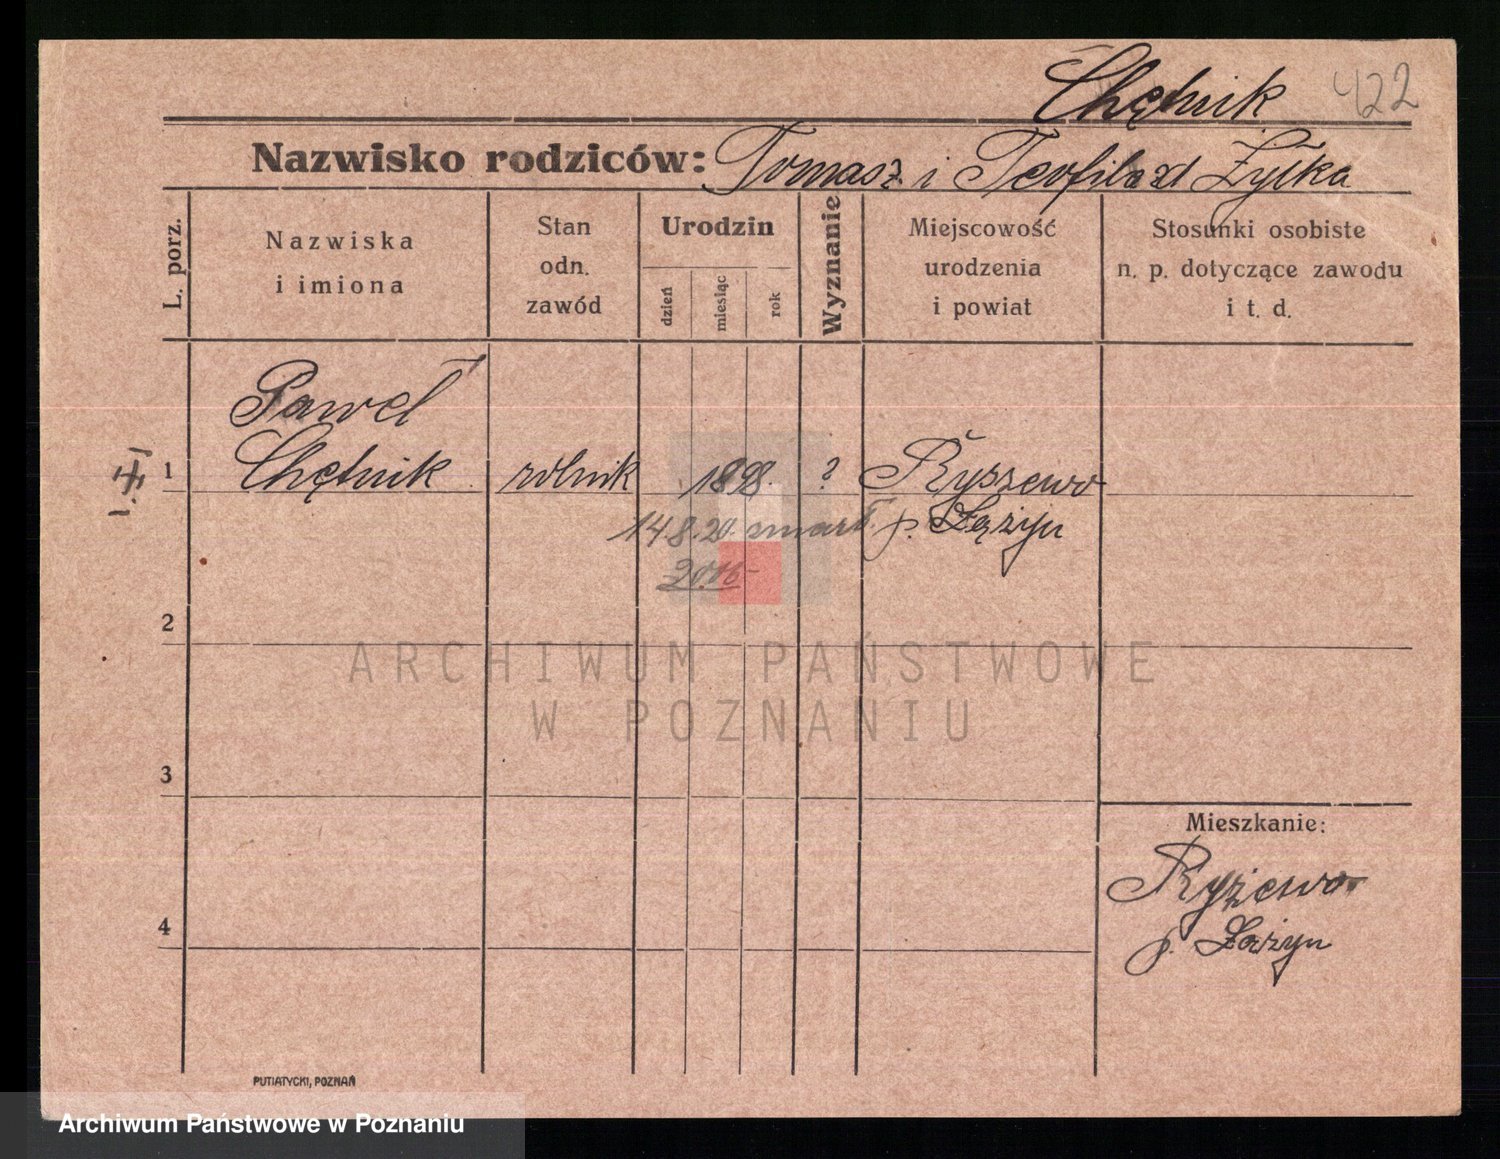 Chętnik 422
Nazwisko rodziców: Tomasz i Teofila zd Żyłka
L. porz.
Nazwiska
i imiona
Stan
odn.
zawód
Urodzin
dzień
miesiąc
rok
Wyznanie
Miejscowość
urodzenia
i powiat
Stosunki osobiste
n. p. dotyczące zawodu
i t. d.
Paweł
1 Chętnik rolnik 1898. ? Ryszewo
14.8.20. zmarł. p. Łążyn
2
ARCHIWUM PAŃSTWOWE
W POZNANIU
3
Mieszkanie:
Ryżewo
p. Łążyn
4
PUTIATYCKI, POZNAŃ
Archiwum Państwowe w Poznaniu